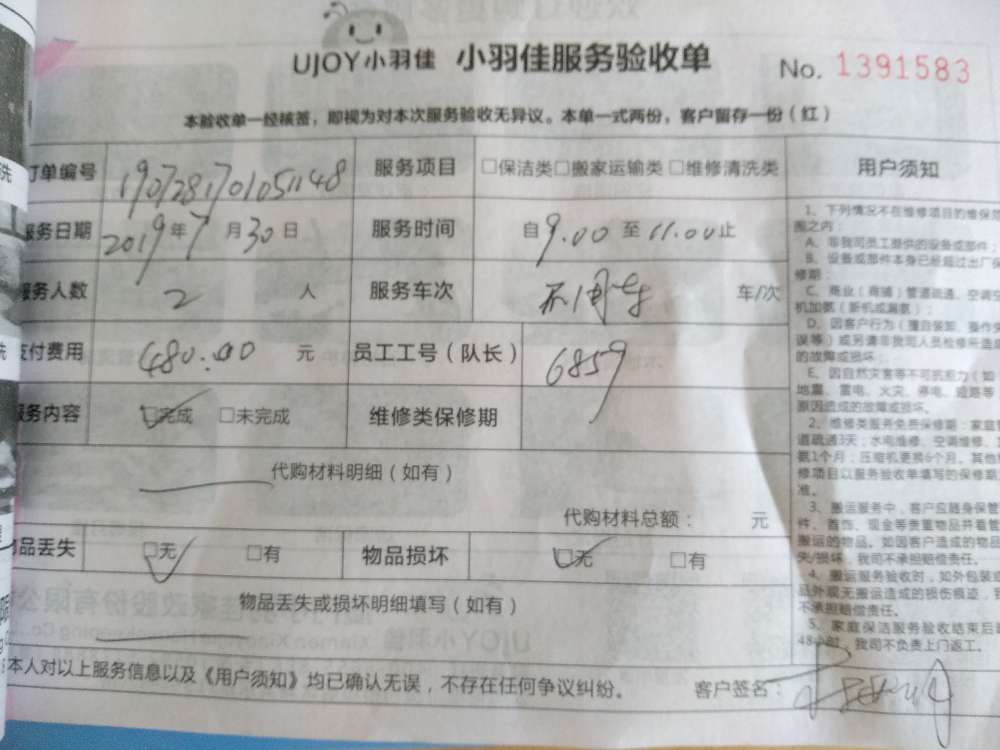 UJOY小羽佳 小羽佳服务验收单 No. 1391583
本验收单一经核签，即视为对本次服务验收无异议。本单一式两份，客户留存一份（红）
订单编号 1907281701051148 服务项目 □保洁类□搬家运输类□维修清洗类
服务日期 2019年7月30日 服务时间 自9.00至11.00止
服务人数 2 人 服务车次 车/次
支付费用 480.00 元 员工工号（队长） 6859
服务内容 □完成 □未完成 维修类保修期
代购材料明细（如有）
代购材料总额： 元
物品丢失 □无 □有 物品损坏 □无 □有
物品丢失或损坏明细填写（如有）
本人对以上服务信息以及《用户须知》均已确认无误，不存在任何争议纠纷。 客户签名：
用户须知
1、下列情况不在维修项目的维保范
围之内：
A、非我司员工提供的设备或部件；
B、设备或部件本身已经超过出厂保
修期；
C、商业（商铺）管道疏通、空调空
机加氨（新机或漏氨）；
D、因客户行为（擅自装卸、操作失
误等）或另请非我司人员检修所造成
的故障或损坏；
E、因自然灾害等不可抗拒力（如：
地震、雷电、火灾、停电、道路等）
原因造成的故障或损坏。
2、维修类服务免费保修期：家庭管
道疏通3天；水电维修、空调维修、
氨1个月；压缩机更换6个月。其他维
修项目以服务验收单填写的保修期
准。
3、搬运服务中，客户应随身保管
件、首饰、现金等贵重物品并看管
搬运的物品。如因客户造成的物品
失/损坏，我司不承担赔偿责任。
4、搬运服务验收时，如外包装或
品外观无搬运造成的损伤痕迹，我
不承担赔偿责任。
5、家庭保洁服务验收结束后
48小时，我司不负责上门返工。